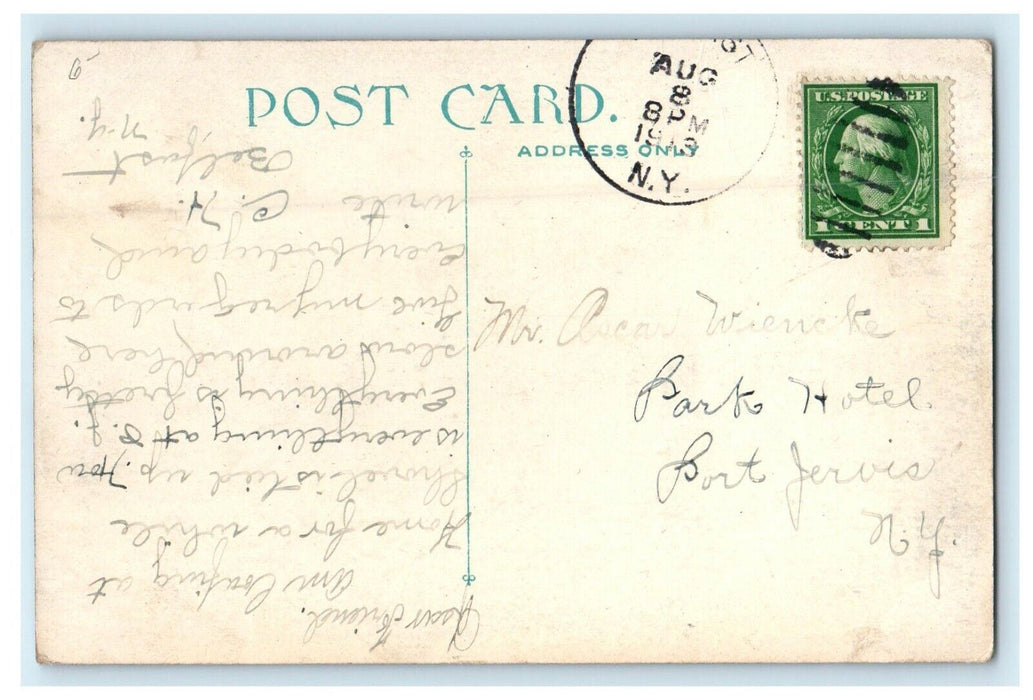 POST CARD.
ADDRESS ONLY
AUG
8
8 PM
1913
N.Y.
U.S. POSTAGE
1 CENT 1
Mr. Oscar Wiencke
Park Hotel
Port Jervis
N.Y.
Friend.
am loafing at
Home for a while
Shovel is tied up How
is everything at P.J.
Everything is pretty
slow around here
Give my regards to
Everybody and
write
C. H.
Belfast
N.Y.